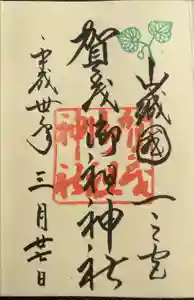 山城國一之宮
賀茂御祖神社
平成卅年三月廿七日